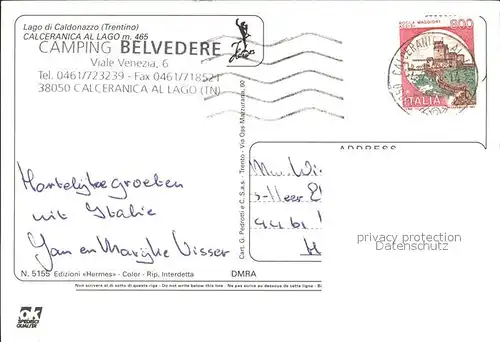 Lago di Caldonazzo (Trentino)
CALCERANICA AL LAGO m. 465
CAMPING BELVEDERE
Viale Venezia, 6
Tel. 0461/723239 - Fax 0461/718521
38050 CALCERANICA AL LAGO (TN)
ROCCA MAGGIORE
ASSISI
800
ITALIA
ADDRESS
Hartelijke groeten
uit Italie
Jan en Marijke Visser
Cart. G. Pedrotti e C. S.a.s. - Trento - Via Oss Mazzurana, 60
privacy protection
Datenschutz
N. 5155 Edizioni «Hermes» - Color - Rip. Interdetta
DMRA
Non scrivere al di sotto di questa riga - Do not write below this line - Ne pas écrire au dessous de cette ligne
SPEDISCI
QUALSIE